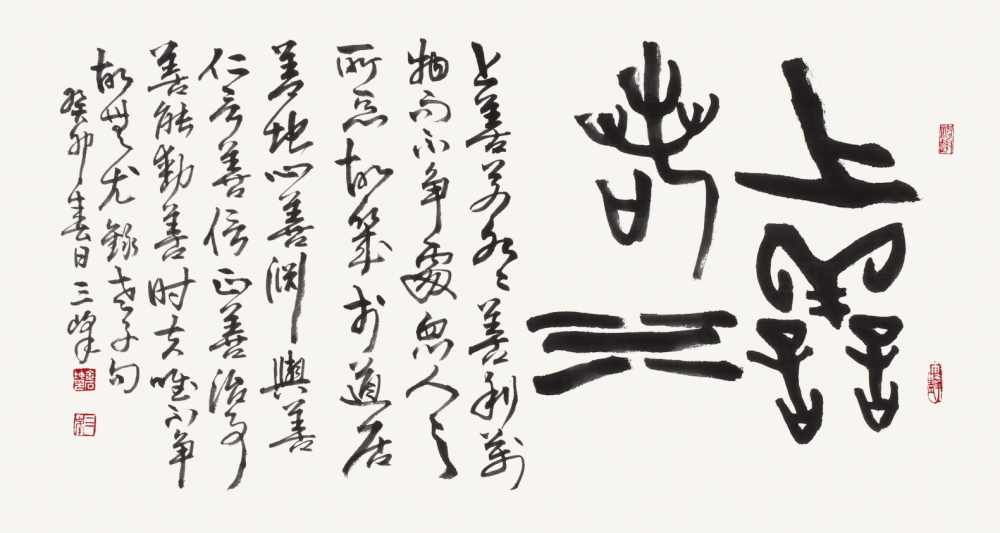 上善
若水
上善若水〻善利萬
物而不争處眾人之
所惡故幾於道居
善地心善淵與善
仁言善信正善治事
善能動善时夫唯不争
故無尤録老子句
癸卯春日三峰